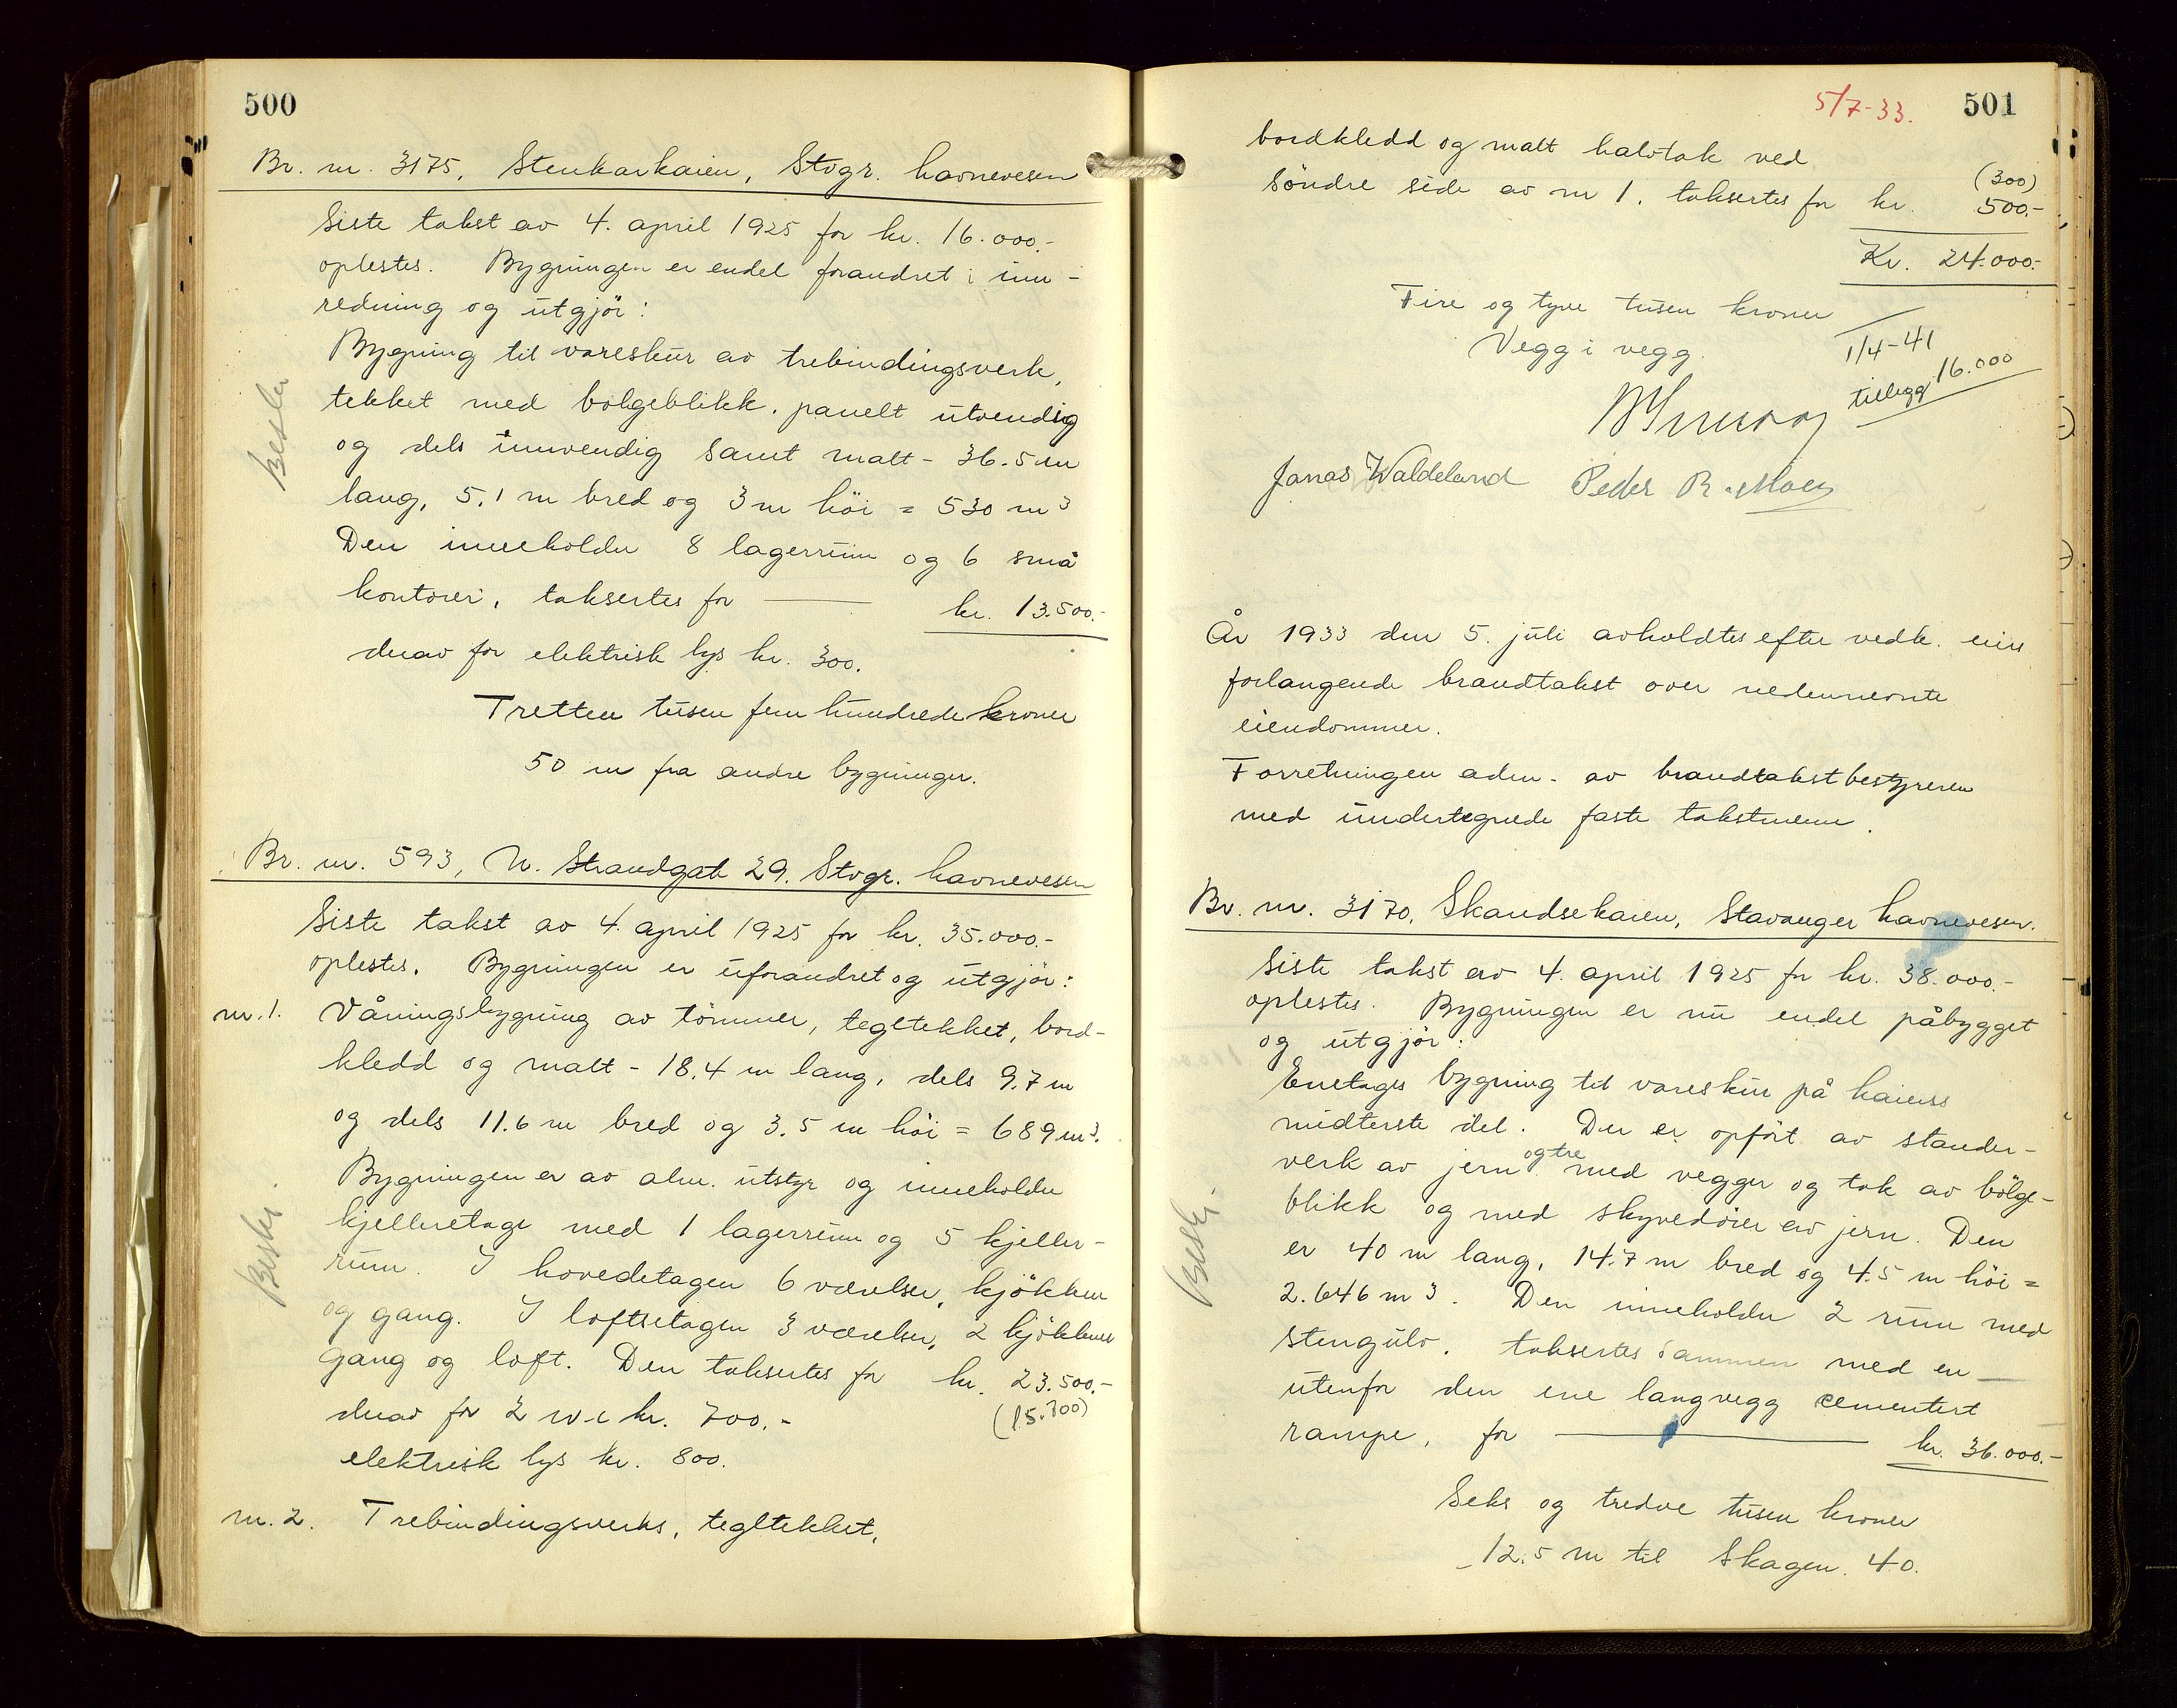 500
Br. nr. 3175, Stenkarkaien, Stvgr. havnevesen
Siste takst av 4. april 1925 for kr. 16.000.-
oplestes. Bygningen er endel forandret i inn-
redning og utgjör:
Bygning til vareskur av trebindingsverk,
tekket med bölgeblikk. panelt utvendig
og dels innvendig samt malt - 36.5 m
lang, 5,1 m bred og 3 m höi = 530 m3
Den inneholder 8 lagerrum og 6 små
kontorer, taksertes for — kr. 13.500.-
derav for elektrisk lys kr. 300.
Tretten tusen fem hundrede kroner
50 m fra andre bygninger.
Br. nr. 593, N. Strandgate 29. Stvgr. havnevesen
Siste takst av 4. april 1925 for kr. 35.000.-
oplestes. Bygningen er uforandret og utgjör:
nr. 1. Våningsbygning av tömmer, tegltekket, bord-
kledd og malt - 18,4 m lang, dels 9.7 m
og dels 11.6 m bred og 3.5 m höi = 689 m3.
Bygningen er av alm. utstyr og inneholder
kjelleretage med 1 lagerrum og 5 kjeller-
rum. I hovedetagen 6 værelser, kjökken
og gang. I loftsetagen 3 værelser, 2 kjökkener
gang og loft. Den taksertes for kr. 23.500.-
(15.700)
derav for 2 w-c kr. 700.-
elektrisk lys kr. 800.
nr. 2. Trebindingsverks, tegltekket,
Beskr.
5/7-33. 501
bordkledd og malt halvtak ved
(300)
söndre side av nr 1. taksertes for kr. 500.-
Kr. 24.000.-
Fire og tyve tusen kroner
Vegg i vegg.
1/4-41
tillegg 16.000
Jonas Waldeland Peder R. Moen
År 1933 den 5. juli avholdtes efter vedk. eiers
forlangende brandtakst over nedennevnte
eiendommer.
Forretningen adm. av brandtakstbestyreren
med undertegnede faste takstmenn.
Br. nr. 3170, Skandsekaien, Stavanger havnevesen.
Siste takst av 4. april 1925 for kr. 38.000.-
oplestes. Bygningen er nu endel påbygget
og utgjör:
Enetages bygning til vareskur på kaiens
midterste del. Den er opfört av stender-
verk av jern og tre med vegger og tak av bölge-
blikk og med skyvedörer av jern. Den
er 40 m lang, 14.7 m bred og 4.5 m höi =
2.646 m3. Den inneholder 2 rum med
stengulv. taksertes sammen med en
utenfor den ene langvegg cementert
rampe, for — kr. 36.000.-
Seks og tredve tusen kroner
12.5 m til Skagen 40.
Beskr.